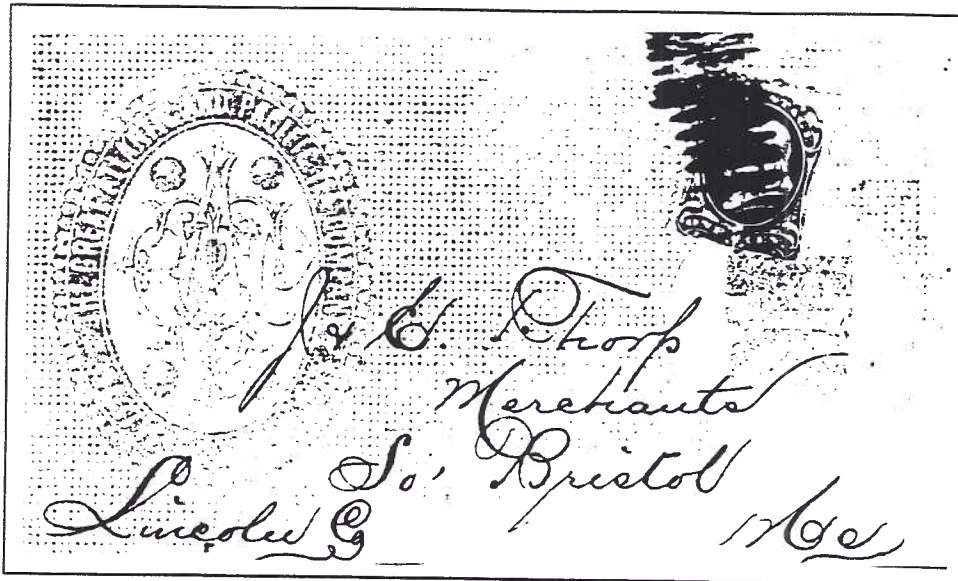 J & E. Thorp
Merchants
So' Bristol
Lincoln Co Me